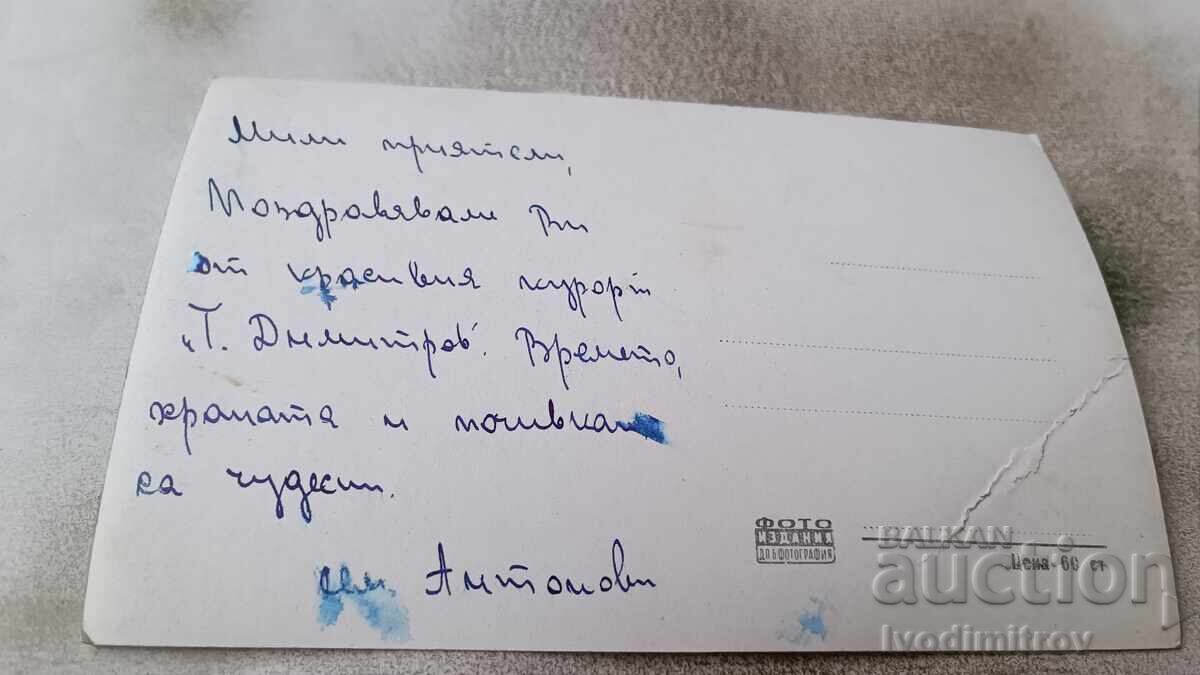 Мили приятели,
Поздравяваме Ви
от красивия курорт
„Г. Димитров". Времето,
храната и почивката
са чудесни.
сем. Антонови
ФОТО
ИЗДАНИЯ
ДП БФОТОГРАФИЯ
Цена - 60 ст.
BALKAN
auction
Ivodimitrov